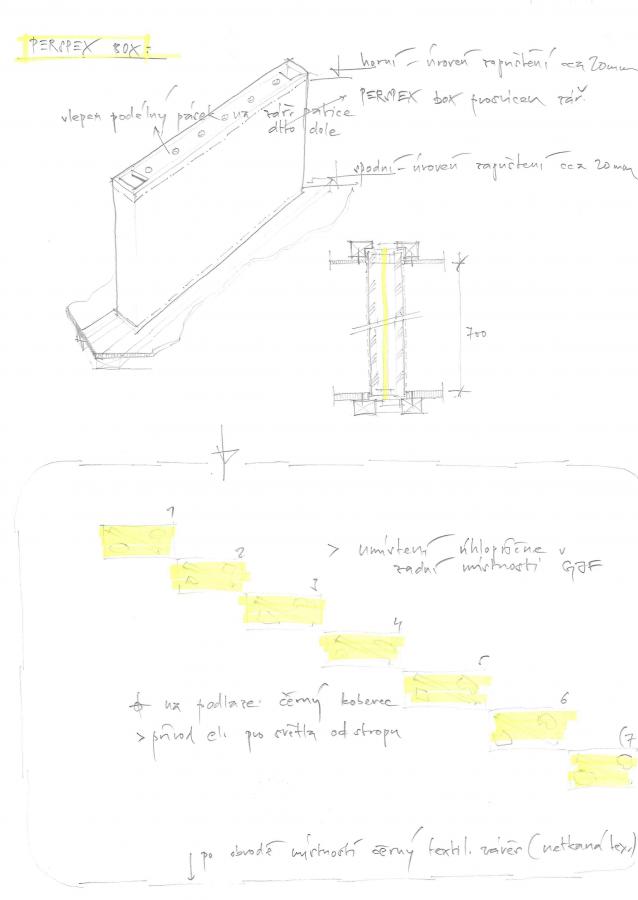 PERSPEX BOX:
horní – úroveň zapuštění cca 20mm
PERSPEX box prosvícen zář.
vlepen podélný pásek na zář. patice
dtto dole
spodní – úroveň zapuštění cca 20mm
700
1
2
3
4
5
6
(7
> umístění úhlopříčně v
zadní místnosti GJF
na podlaze: černý koberec
> přívod el. pro světla od stropu
po obvodě místnosti černý textil. závěs (netkaná tex.)